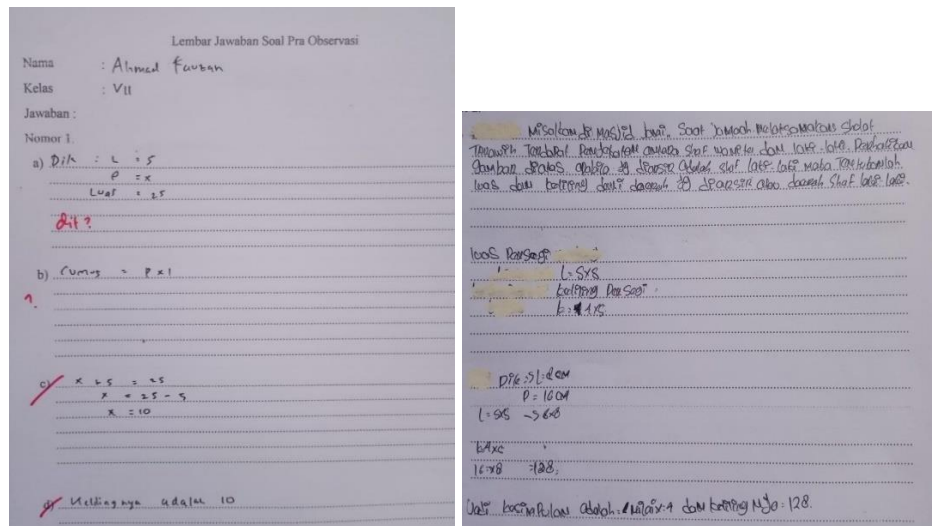 Lembar Jawaban Soal Pra Observasi
Nama : Ahmad Fauzan
Kelas : VII
Jawaban :
Nomor 1.
a) Dik : L = 5
P = x
Luas = 25
dit?
b) rumus = P x l
?
c) x + 5 = 25
x = 25 - 5
x = 10
d) Kelilingnya adalah 10
Misalkan di Masjid kami. Saat Jamaah melaksanakan Sholat
Tarawih Terdapat Pembatas antara Shaf wanita dan laki-laki. Perhatikan
Gambar diatas apabila yg diarsir adalah shaf laki-laki maka Tentukanlah
luas dan keliling dari daerah yg diarsir atau daerah Shaf laki-laki.
luas Persegi
L = S x S
keliling Persegi
k = 4 x S
Dik = S
P = 16 cm
L = S x S
16 x 8 = 128
Jadi kesimpulan adalah dan keliling Nya = 128.